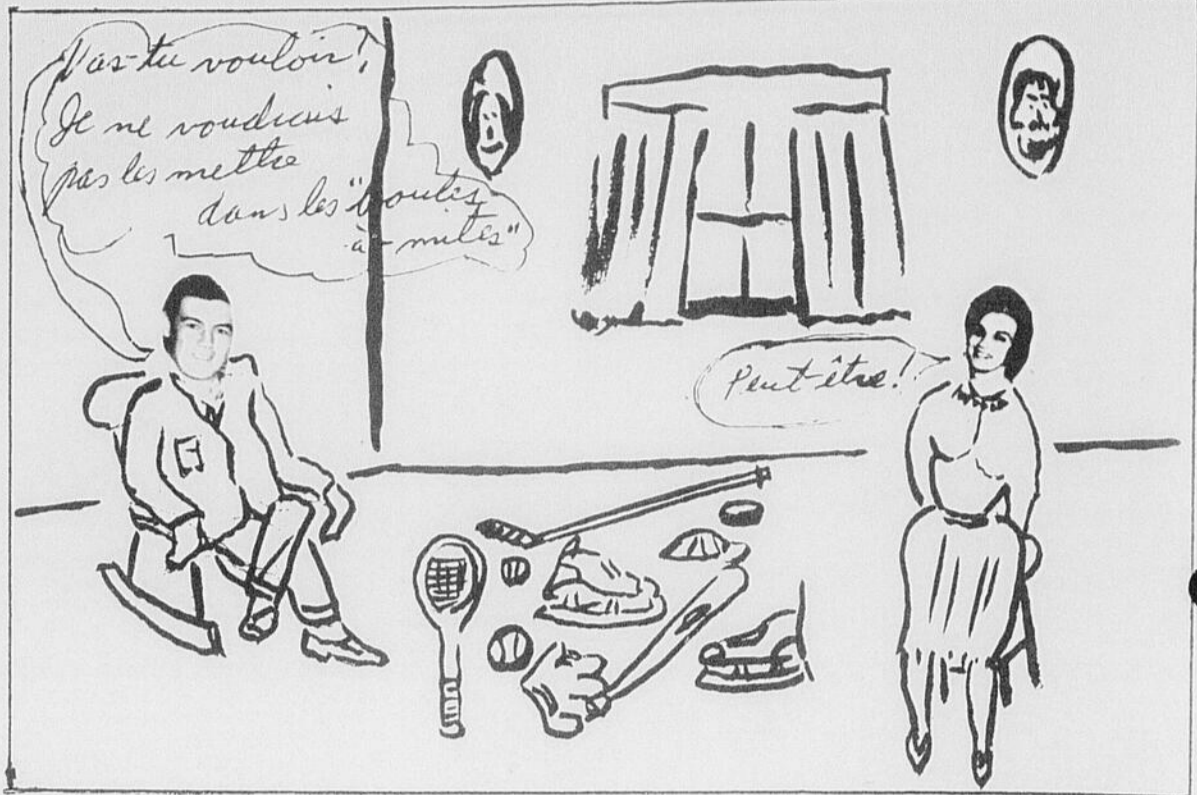 Vas-tu vouloir?
Je ne voudrais
pas les mettre
dans les "boules
à - mites"
Peut-être!